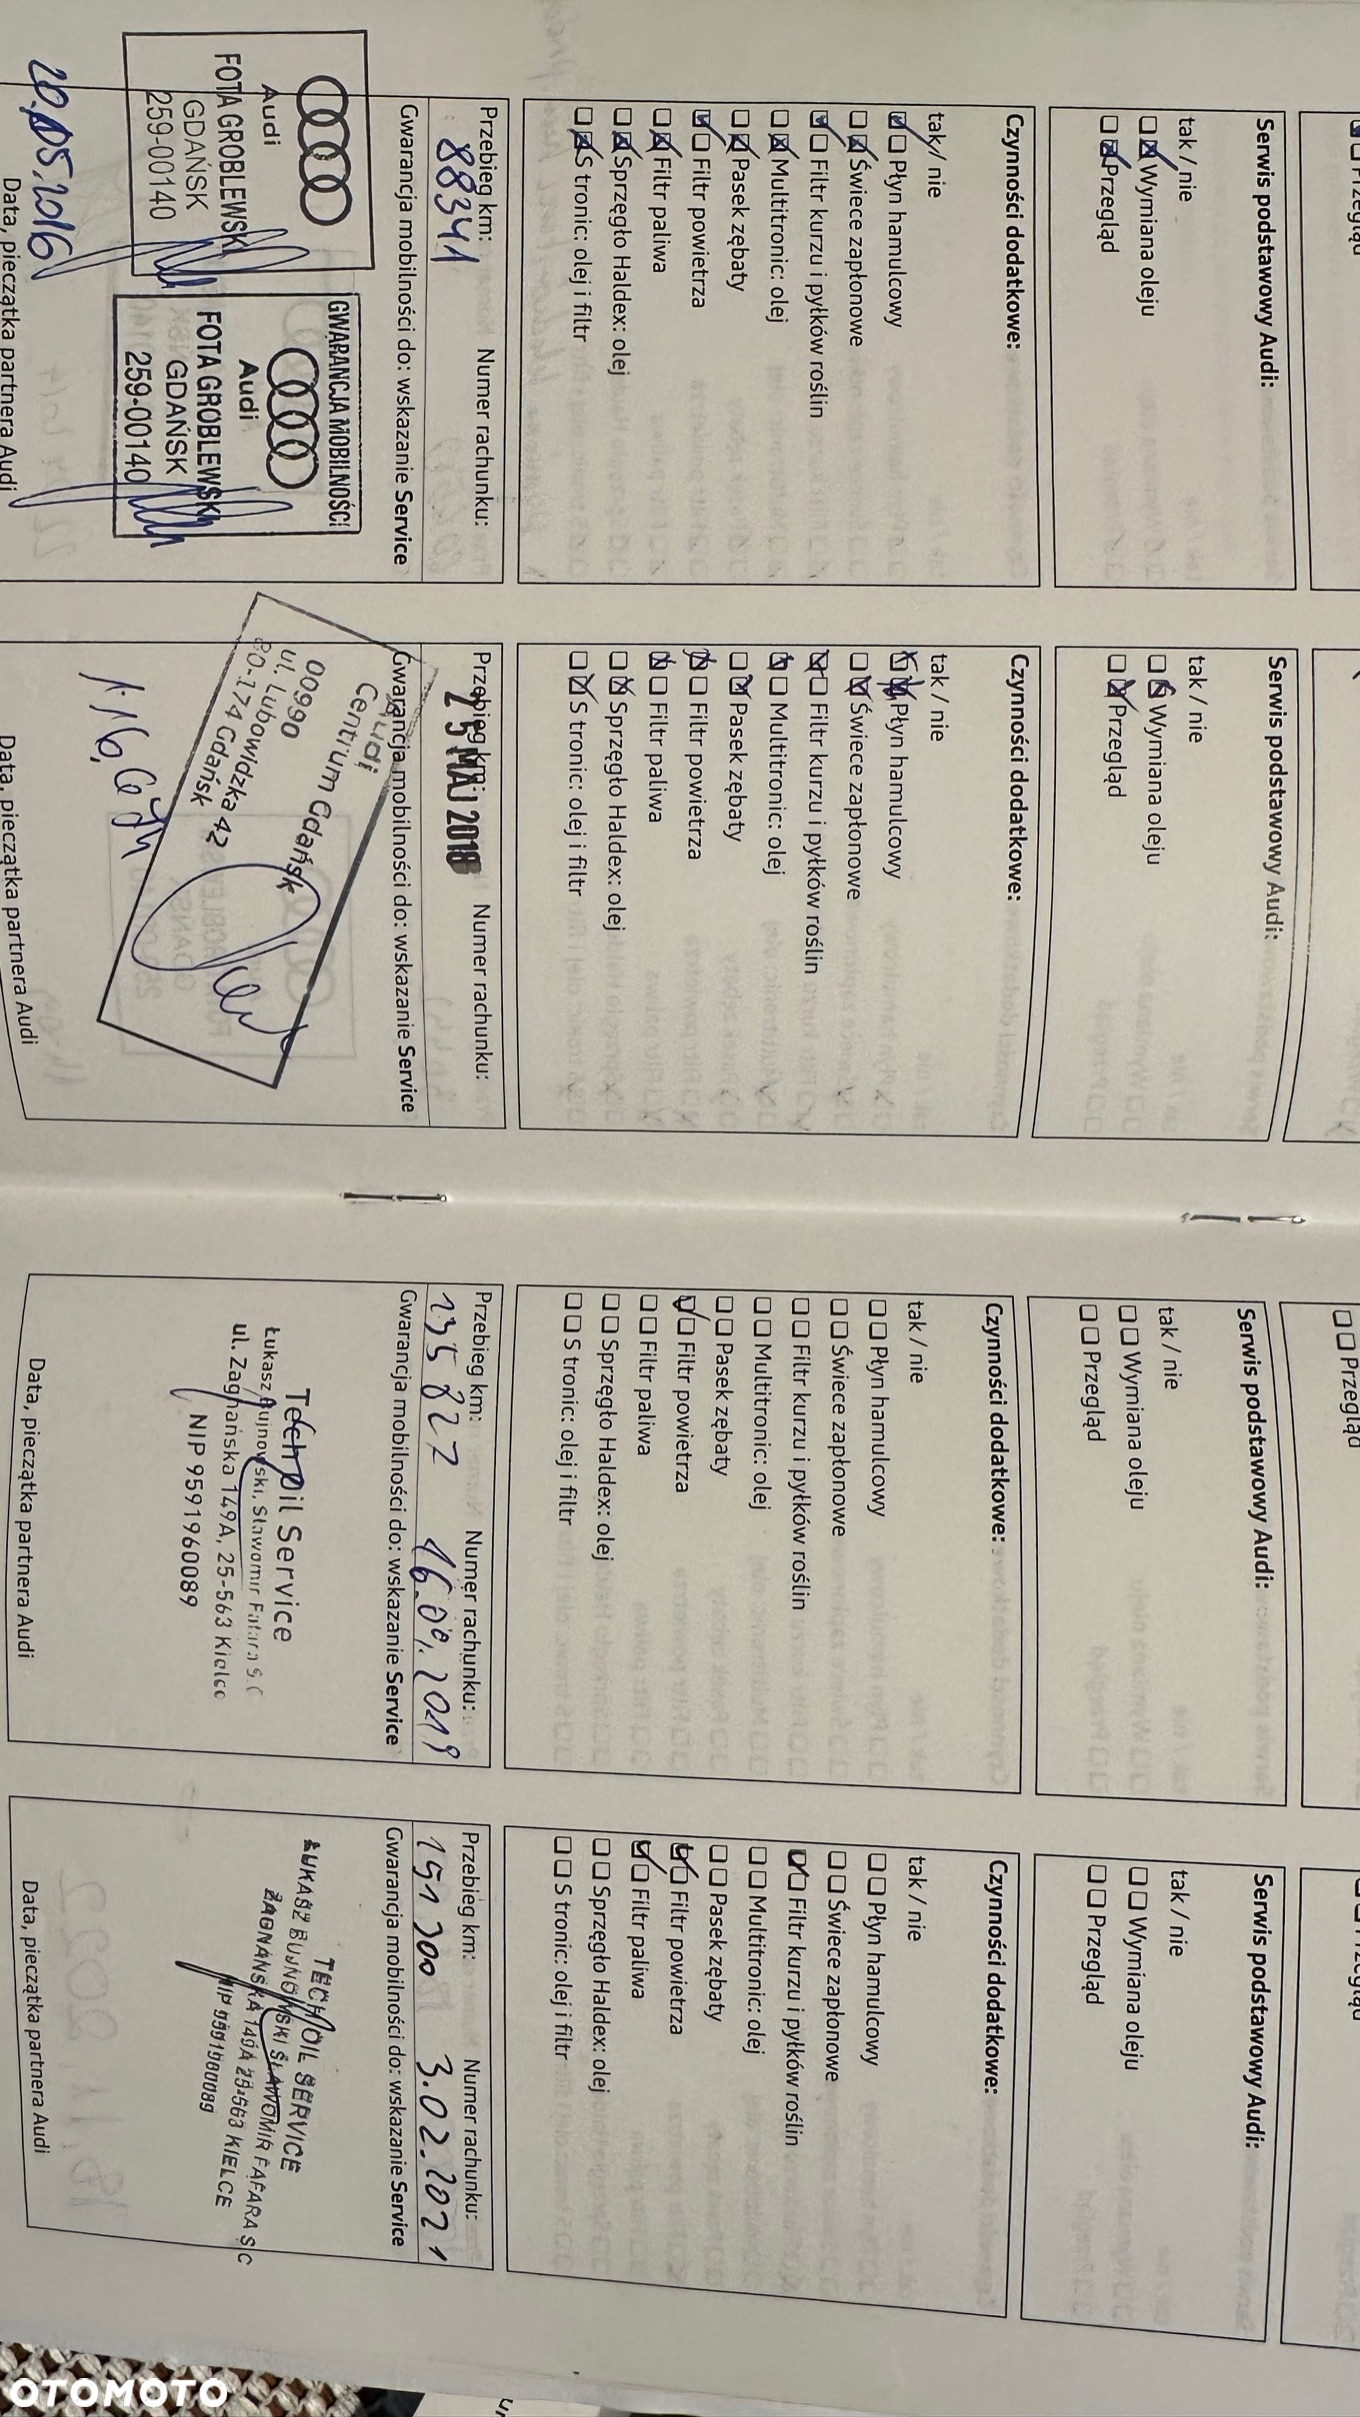 Przegląd
Serwis podstawowy Audi:
tak / nie
Wymiana oleju
Przegląd
Czynności dodatkowe:
tak / nie
Płyn hamulcowy
Świece zapłonowe
Filtr kurzu i pyłków roślin
Multitronic: olej
Pasek zębaty
Filtr powietrza
Filtr paliwa
Sprzęgło Haldex: olej
S tronic: olej i filtr
Przebieg km: Numer rachunku:
88341
Gwarancja mobilności do: wskazanie Service
Audi
FOTA GROBLEWSKI
GDAŃSK
259-00140
GWARANCJA MOBILNOŚCI
Audi
FOTA GROBLEWSKI
GDAŃSK
259-00140
20.05.2016
Data, pieczątka partnera Audi
Serwis podstawowy Audi:
tak / nie
Wymiana oleju
Przegląd
Czynności dodatkowe:
tak / nie
Płyn hamulcowy
Świece zapłonowe
Filtr kurzu i pyłków roślin
Multitronic: olej
Pasek zębaty
Filtr powietrza
Filtr paliwa
Sprzęgło Haldex: olej
S tronic: olej i filtr
Przebieg km: Numer rachunku:
25 MAJ 2018
Gwarancja mobilności do: wskazanie Service
Audi
Centrum Gdańsk
00990
ul. Lubowidzka 42
80-174 Gdańsk
Data, pieczątka partnera Audi
Przegląd
Serwis podstawowy Audi:
tak / nie
Wymiana oleju
Przegląd
Czynności dodatkowe:
tak / nie
Płyn hamulcowy
Świece zapłonowe
Filtr kurzu i pyłków roślin
Multitronic: olej
Pasek zębaty
Filtr powietrza
Filtr paliwa
Sprzęgło Haldex: olej
S tronic: olej i filtr
Przebieg km: Numer rachunku:
135 827 16.09.2019
Gwarancja mobilności do: wskazanie Service
Techoil Service
Łukasz Bujnowski, Sławomir Fafara S.C
ul. Zagnańska 149A, 25-563 Kielce
NIP 9591960089
Data, pieczątka partnera Audi
Przegląd
Serwis podstawowy Audi:
tak / nie
Wymiana oleju
Przegląd
Czynności dodatkowe:
tak / nie
Płyn hamulcowy
Świece zapłonowe
Filtr kurzu i pyłków roślin
Multitronic: olej
Pasek zębaty
Filtr powietrza
Filtr paliwa
Sprzęgło Haldex: olej
S tronic: olej i filtr
Przebieg km: Numer rachunku:
3.02.2021
Gwarancja mobilności do: wskazanie Service
TECHOIL SERVICE
ŁUKASZ BUJNOWSKI SŁAWOMIR FAFARA S C
ZAGNAŃSKA 149A 25-563 KIELCE
NIP
Data, pieczątka partnera Audi
OTOMOTO